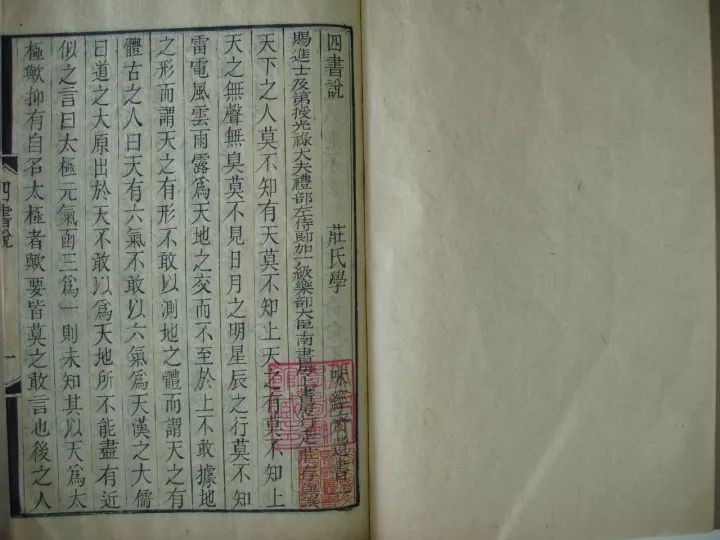 四書說 莊氏學 味經齋遺書
賜進士及第授光祿大夫禮部左侍郎加一級樂部大臣南書房上書房行走莊存與譔
天下之人莫不知有天莫不知上天之有莫不知上
天之無聲無臭莫不見日月之明星辰之行莫不知
雷電風雲雨露為天地之交而不至於上不敢據地
之形而謂天之有形不敢以測地之體而謂天之有
體古之人曰天有六氣不敢以六氣為天漢之大儒
曰道之大原出於天不敢以為天地所不能盡有近
似之言曰太極元氣函三為一則未知其以天為大
極歟抑有自名太極者歟要皆莫之敢言也後之人
四書說
一